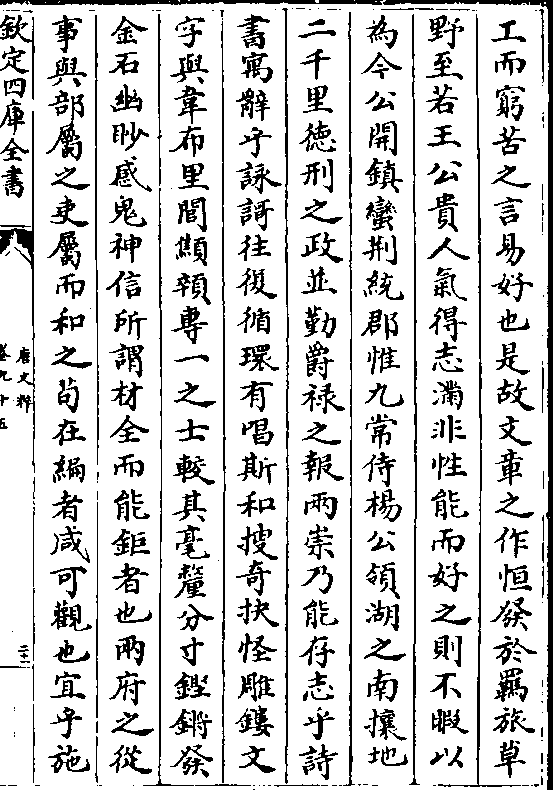 工而窮苦之言易好也是故文章之作恒發於羈旅草
野至若王公貴人氣得志滿非性能而好之則不暇以
為今公開鎮蠻荆統郡惟九常侍楊公領湖之南攘地
二千里徳刑之政並勤爵禄之報兩崇乃能存志乎詩
書寓辭乎詠謌往復循環有唱斯和搜竒抉怪雕鏤文
字與韋布里閭顦顇専一之士較其毫釐分寸鏗鏘發
金石幽眇感鬼神信所謂材全而能鉅者也兩府之從
事與部屬之吏屬而和之茍在編者咸可觀也宜乎施
欽定四庫全書
唐文粹
卷九十五